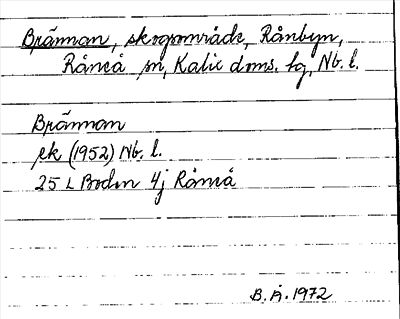 Brännan, skogsområde, Rånbyn,
Råneå sn, Kalix doms. hg, Nb. l.
Brännan
ek (1952) Nb. l.
25 L Boden 4j Råneå
B. Å. 1972